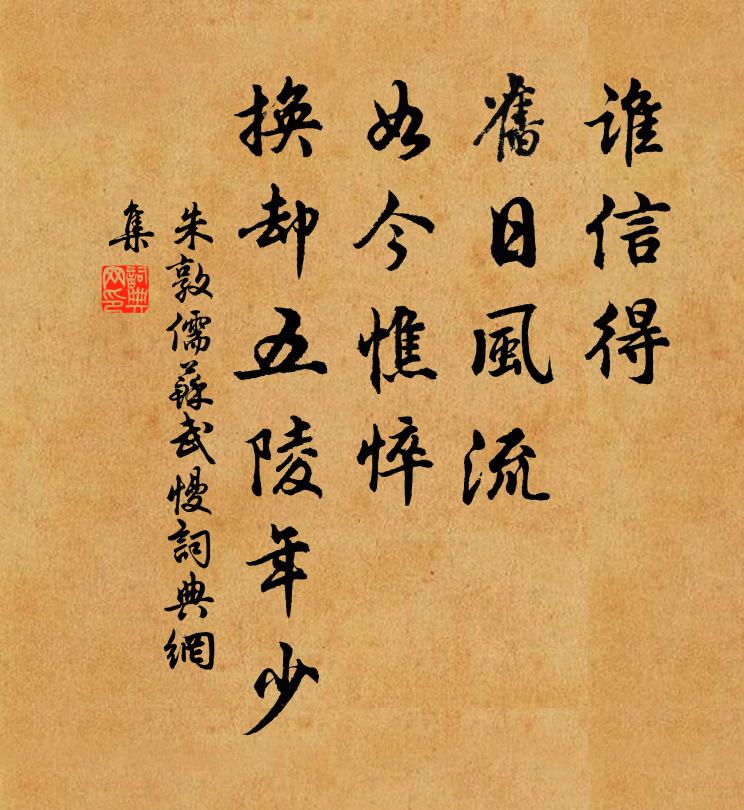 誰信得
舊日風流
如今憔悴
換却五陵年少
朱敦儒蘇武慢詞典網
集
詞典
网印